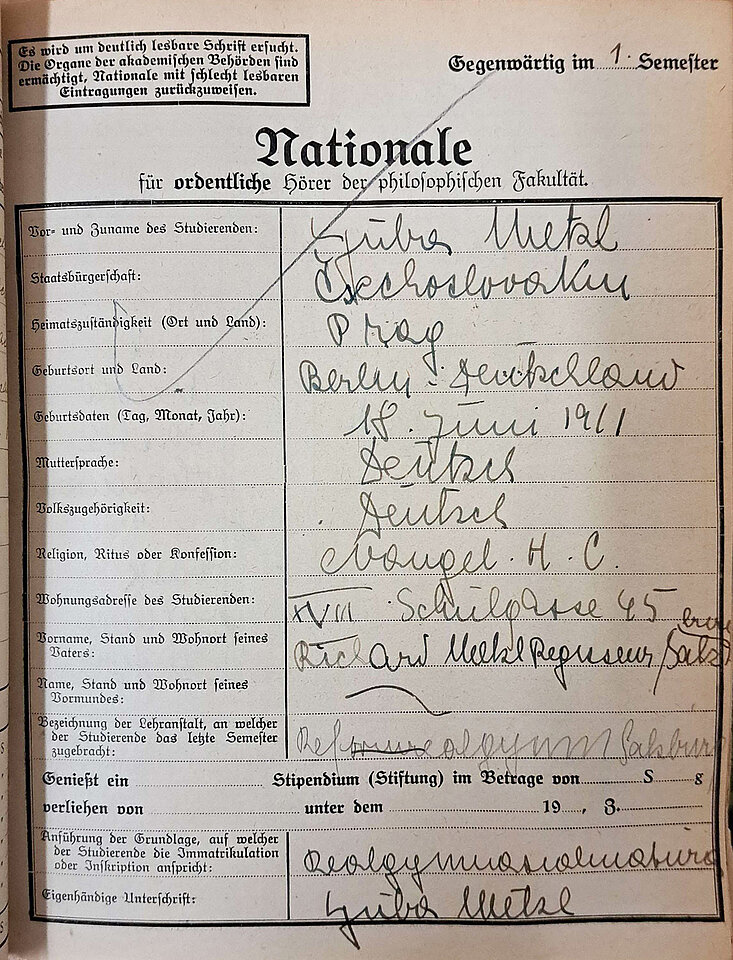 Es wird um deutlich lesbare Schrift ersucht.
Die Organe der akademischen Behörden sind
ermächtigt, Nationale mit schlecht lesbaren
Eintragungen zurückzuweisen.
Gegenwärtig im 1. Semester
Nationale
für ordentliche Hörer der philosophischen Fakultät.
Vor- und Zuname des Studierenden: Metzl
Staatsbürgerschaft: Čechoslovakin
Heimatszuständigkeit (Ort und Land): Prag
Geburtsort und Land: Berlin - Deutschland
Geburtsdaten (Tag, Monat, Jahr): 18. Juni 1911
Muttersprache: Deutsch
Volkszugehörigkeit: Deutsch
Religion, Ritus oder Konfession: evangel. H. C.
Wohnungsadresse des Studierenden: XVII Schulgasse 45
Vorname, Stand und Wohnort seines
Vaters: Richard Metzl Regisseur
Name, Stand und Wohnort seines
Vormundes:
Bezeichnung der Lehranstalt, an welcher
der Studierende das letzte Semester
zugebracht: Salzburg
Genießt ein Stipendium (Stiftung) im Betrage von S g
verliehen von unter dem 19 , Z.
Anführung der Grundlage, auf welcher
der Studierende die Immatrikulation
oder Inskription anspricht: Realgymnasialmatura
Eigenhändige Unterschrift: Metzl